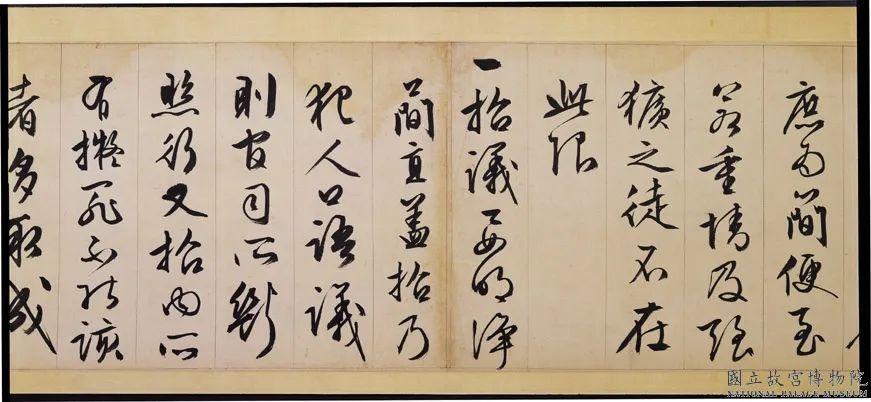 庶為簡便至
若重情及强
獷之徒不在
此限
一招議要明淨
簡直蓋招乃
犯人口語議
則官司所斷
照行又招内所
有擬罪不能該
者多取成
國立故宮博物院
NATIONAL PALACE MUSEUM